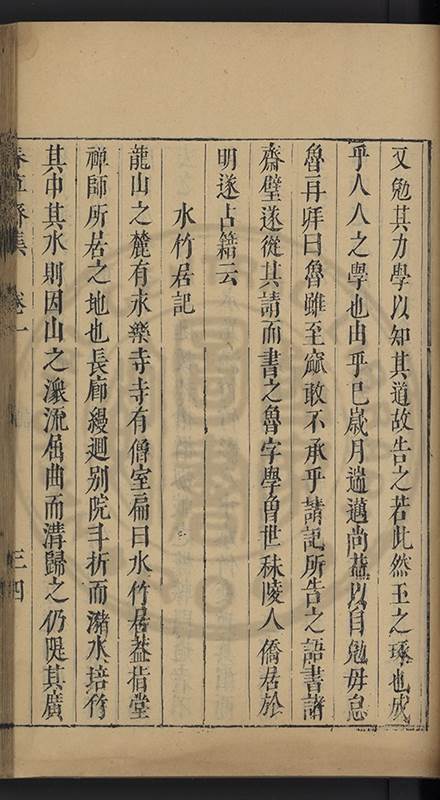 又勉其力學以知其道故告之若此然玉之琢也成
乎人人之學也由乎己歲月遄邁尚益以自勉毋怠
魯再拜曰魯雖至寙敢不承乎請記所告之語書諸
齋壁遂從其請而書之魯字學曾世秣陵人僑居於
明遂占籍云
水竹居記
龍山之麓有永樂寺寺有僧室扁曰水竹居葢指堂
禪師所居之地也長廊縵迴别院斗折而瀦水培竹
其中其水則因山之㶑流屈曲而溝歸之仍隄其廣
春草齋集 卷一 三四